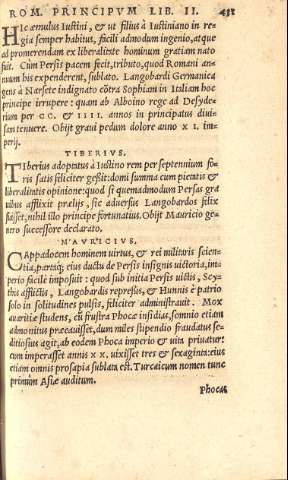 ROM. PRINCIPVM LIB. II. 431
HIc æmulus Iustini, & ut filius à Iustiniano in re-
gia semper habitus, facili admodum ingenio, atque
ad promerendam ex liberalitate hominum gratiam nato
fuit. Cum Persis pacem fecit, tributo, quod Romani an-
nuum his expenderent, sublato. Langobardi Germanica
gens à Narsete indignato cōtra Sophiam in Italiam hoc
principe irrupere: quam ab Alboino rege ad Desyde-
rium per CC. & IIII. annos in principatus diui-
sam tenuere. Obijt graui pedum dolore anno XI. im-
perij.
TIBERIVS.
TIberius adoptatus à Iustino rem per septennium fo-
ris satis feliciter gessit: domi summa cum pietatis &
liberalitatis opinione: quod si quemadmodum Persas gra-
uibus afflixit prælijs, sic aduersus Langobardos felix
fuisset, nihil illo principe fortunatius. Obijt Mauricio ge-
nero successore declarato.
MAVRICIVS.
CAppadocem hominem uirtus, & rei militaris scien-
tia, partaq; eius ductu de Persis insignis uictoria, im-
perio facile imposuit: quod sub initia Persis uictis, Scy-
this afflictis, Langobardis repressis, & Hunnis è patrio
solo in solitudines pulsis, feliciter administrauit. Mox
auaritiæ studens, cū frustra Phocæ insidias, somnio etiam
admonitus præcauisset, dum miles stipendio fraudatus se-
ditiosius agit, ab eodem Phoca imperio & uita priuatur:
cum imperasset annis XX. uixisset tres & sexaginta: eius
etiam omnis prosapia sublata est. Turcaicum nomen tunc
primum Asiæ auditum.
Phocas